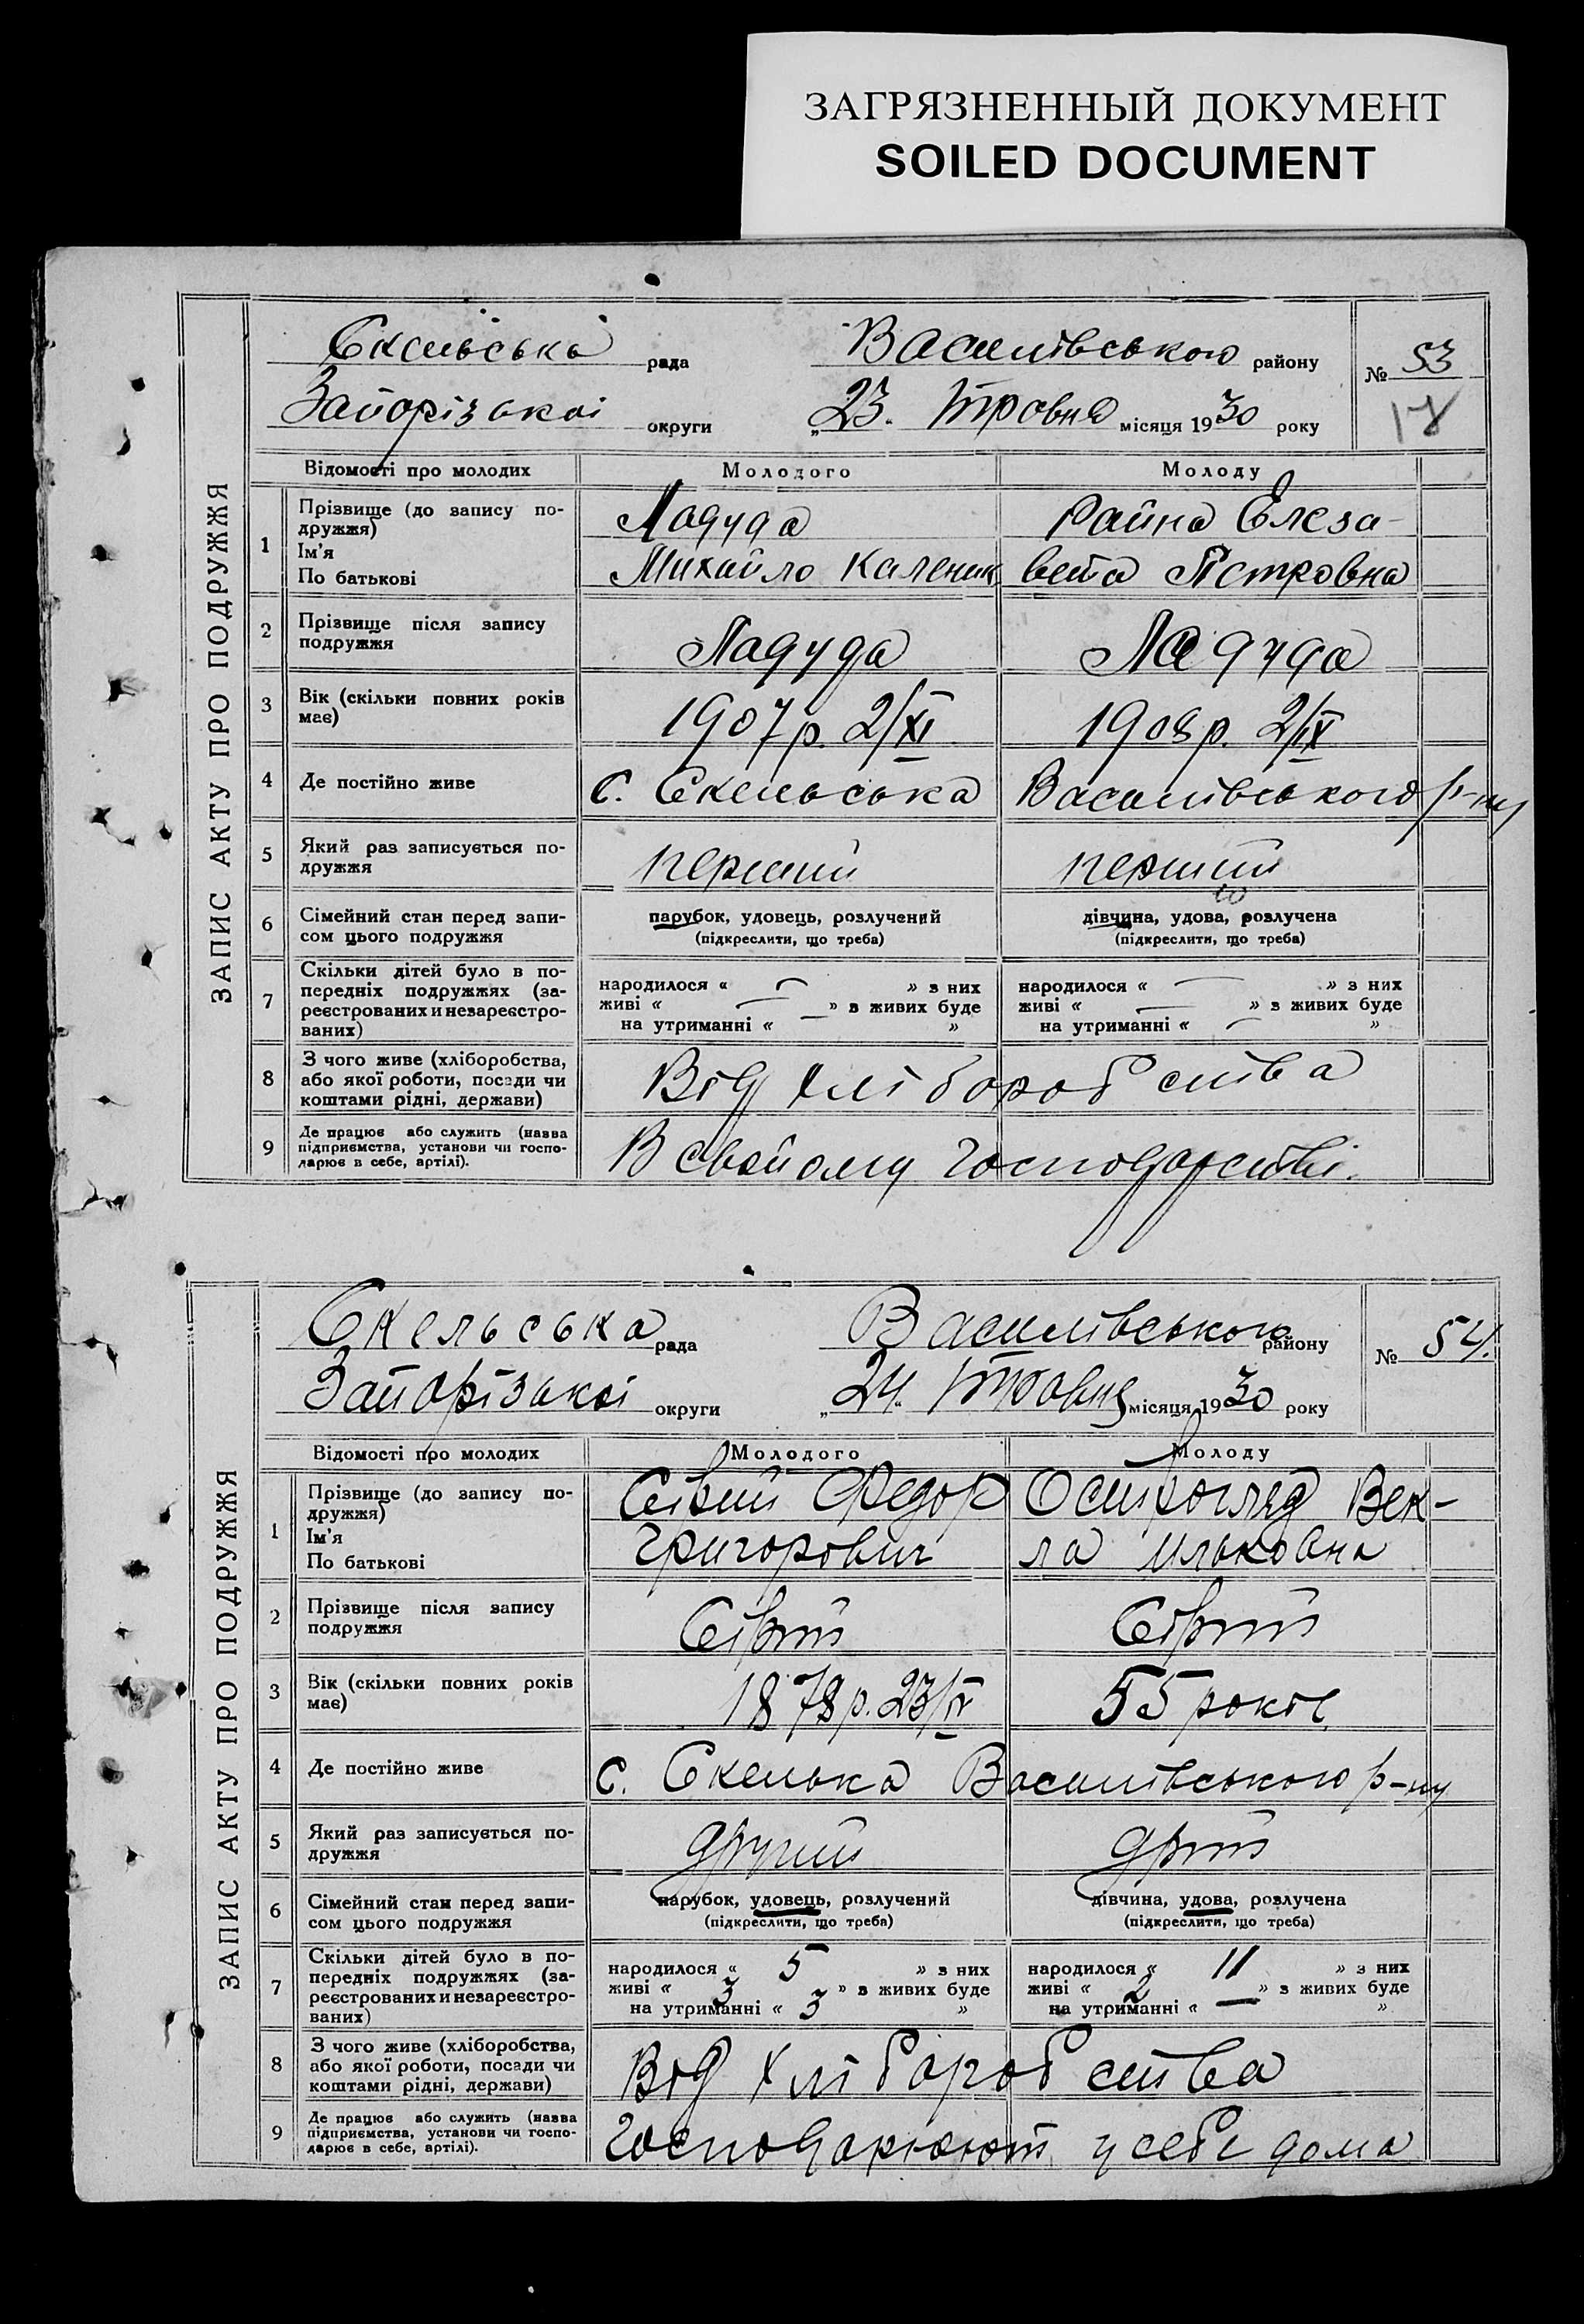 ЗАГРЯЗНЕННЫЙ ДОКУМЕНТ
SOILED DOCUMENT
ЗАПИС АКТУ ПРО ПОДРУЖЖЯ
Скельська рада Василівського району № 53
Запорізькоі округи „23. Травня місяця 1930 року 17
Відомості про молодих Молодого Молоду
1 Прізвище (до запису по-
дружжя)
Ім'я
По батькові
Ладуда Райна Елеза-
Михайло Каленик вета Петровна
2 Прізвище після запису
подружжя
Ладуда Ладуда
3 Вік (скільки повних років
має)
1907 р. 2/XI 1908 р. 2/IX
4 Де постійно живе с. Скельська Василівського р-ну
5 Який раз записується по-
дружжя
перший перший
6 Сімейний стан перед запи-
сом цього подружжя
парубок, удовець, розлучений дівчина, удова, розлучена
(підкреслити, що треба) (підкреслити, що треба)
7 Скільки дітей було в по-
передніх подружжях (за-
реєстрованих и незареєстро-
ваних)
народилося « — » з них народилося « — » з них
живі « — » з живих буде живі « — » з живих буде
на утриманні « — » на утриманні « — »
8 З чого живе (хліборобства,
або якої роботи, посади чи
коштами рідні, держави)
Від хліборобства
9 Де працює або служить (назва
підприємства, установи чи госпо-
дарює в себе, артілі).
В свойому господарстві.
ЗАПИС АКТУ ПРО ПОДРУЖЖЯ
Скельська рада Василівського району № 54.
Запорізькоі округи „24. Травня місяця 1930 року
Відомості про молодих Молодого Молоду
1 Прізвище (до запису по-
дружжя)
Ім'я
По батькові
Сірий Федор Острогляд Век-
Григорович ла Ильковна
2 Прізвище після запису
подружжя
Сірий Сірий
3 Вік (скільки повних років
має)
1878 р. 23/IV 55 років
4 Де постійно живе с. Скелька Василівського р-ну
5 Який раз записується по-
дружжя
другий
6 Сімейний стан перед запи-
сом цього подружжя
парубок, удовець, розлучений дівчина, удова, розлучена
(підкреслити, що треба) (підкреслити, що треба)
7 Скільки дітей було в по-
передніх подружжях (за-
реєстрованих и незареєстро-
ваних)
народилося « 5 » з них народилося « 11 » з них
живі « 3 » з живих буде живі « 2 » з живих буде
на утриманні « 3 » на утриманні « — »
8 З чого живе (хліборобства,
або якої роботи, посади чи
коштами рідні, держави)
Від хліборобства
9 Де працює або служить (назва
підприємства, установи чи госпо-
дарює в себе, артілі).
Господарюють у себе дома